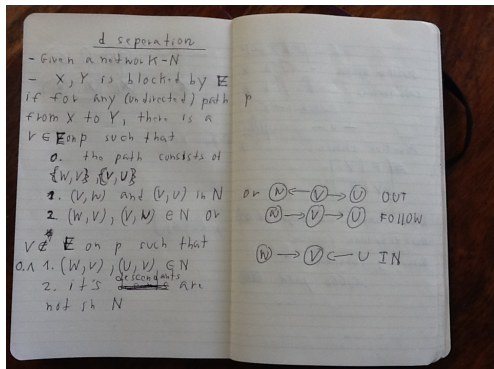 d seperation
- Given a network - N
- X, Y is blocked by E
if for any (undirected) path p
from X to Y, there is a
V ∈ E on p such that
0. the path consists of
{W,V}, {V,U}
1. (V, W) and (V, U) in N or
2. (W, V), (V, U) ∈ N or
V ∉ E on p such that
0.1 1. (W, V), (U, V) ∈ N
2. it's descendants are
not in N
W ← V → U OUT
W → V → U FOLLOW
W → V ← U IN